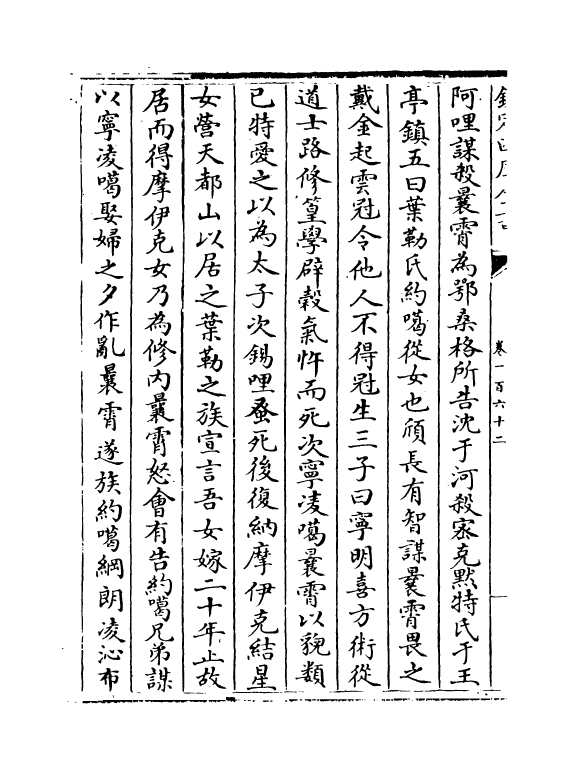 欽定四庫全書
卷一百六十二
阿哩謀殺曩霄為鄂桑格所告沈于河殺宻克黙特氏于王
亭鎮五曰葉勒氏約噶從女也頎長有智謀曩霄畏之
戴金起雲冠令他人不得冠生三子曰寧明喜方術從
道士路修篁學辟穀氣忤而死次寧凌噶曩霄以貌類
已特愛之以為太子次錫哩蚤死後復納摩伊克結星
女營天都山以居之葉勒之族宣言吾女嫁二十年止故
居而得摩伊克女乃為修内曩霄怒會有告約噶兄弟謀
以寧凌噶娶婦之夕作亂曩霄遂族約噶綱朗凌沁布